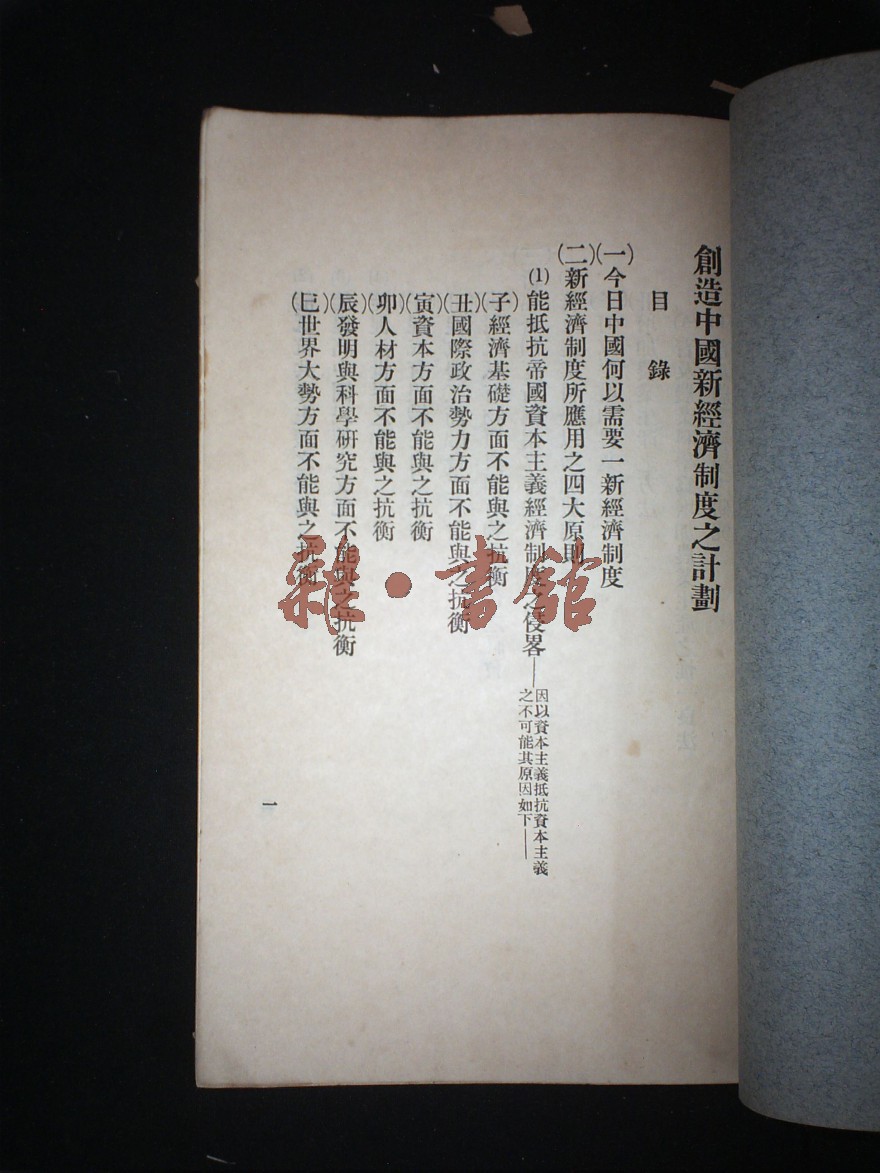 創造中國新經濟制度之計劃
目錄
(一)今日中國何以需要一新經濟制度
(二)新經濟制度所應用之四大原則
(1)能抵抗帝國資本主義經濟制度之侵畧——因以資本主義抵抗資本主義
之不可能其原因如下——
(子)經濟基礎方面不能與之抗衡
(丑)國際政治勢力方面不能與之抗衡
(寅)資本方面不能與之抗衡
(卯)人材方面不能與之抗衡
(辰)發明與科學研究方面不能與之抗衡
(巳)世界大勢方面不能與之抗衡
一
雜·書館